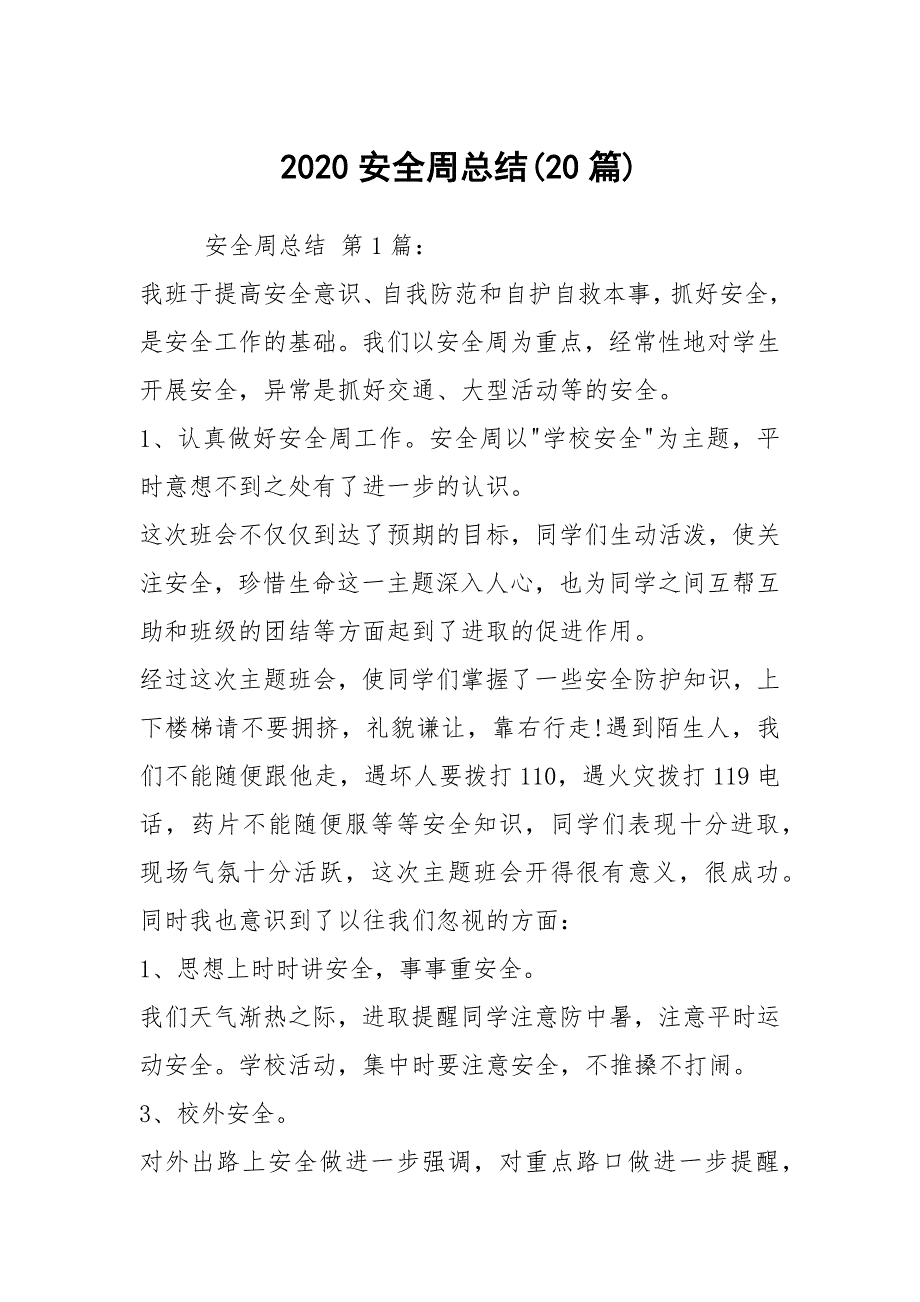 2020安全周总结(20篇)
安全周总结 第1篇：
我班于提高安全意识、自我防范和自护自救本事，抓好安全，
是安全工作的基础。我们以安全周为重点，经常性地对学生
开展安全，异常是抓好交通、大型活动等的安全。
1、认真做好安全周工作。安全周以"学校安全"为主题，平
时意想不到之处有了进一步的认识。
这次班会不仅仅到达了预期的目标，同学们生动活泼，使关
注安全，珍惜生命这一主题深入人心，也为同学之间互帮互
助和班级的团结等方面起到了进取的促进作用。
经过这次主题班会，使同学们掌握了一些安全防护知识，上
下楼梯请不要拥挤，礼貌谦让，靠右行走!遇到陌生人，我
们不能随便跟他走，遇坏人要拨打110，遇火灾拨打119电
话，药片不能随便服等等安全知识，同学们表现十分进取，
现场气氛十分活跃，这次主题班会开得很有意义，很成功。
同时我也意识到了以往我们忽视的方面：
1、思想上时时讲安全，事事重安全。
我们天气渐热之际，进取提醒同学注意防中暑，注意平时运
动安全。学校活动，集中时要注意安全，不推搡不打闹。
3、校外安全。
对外出路上安全做进一步强调，对重点路口做进一步提醒，